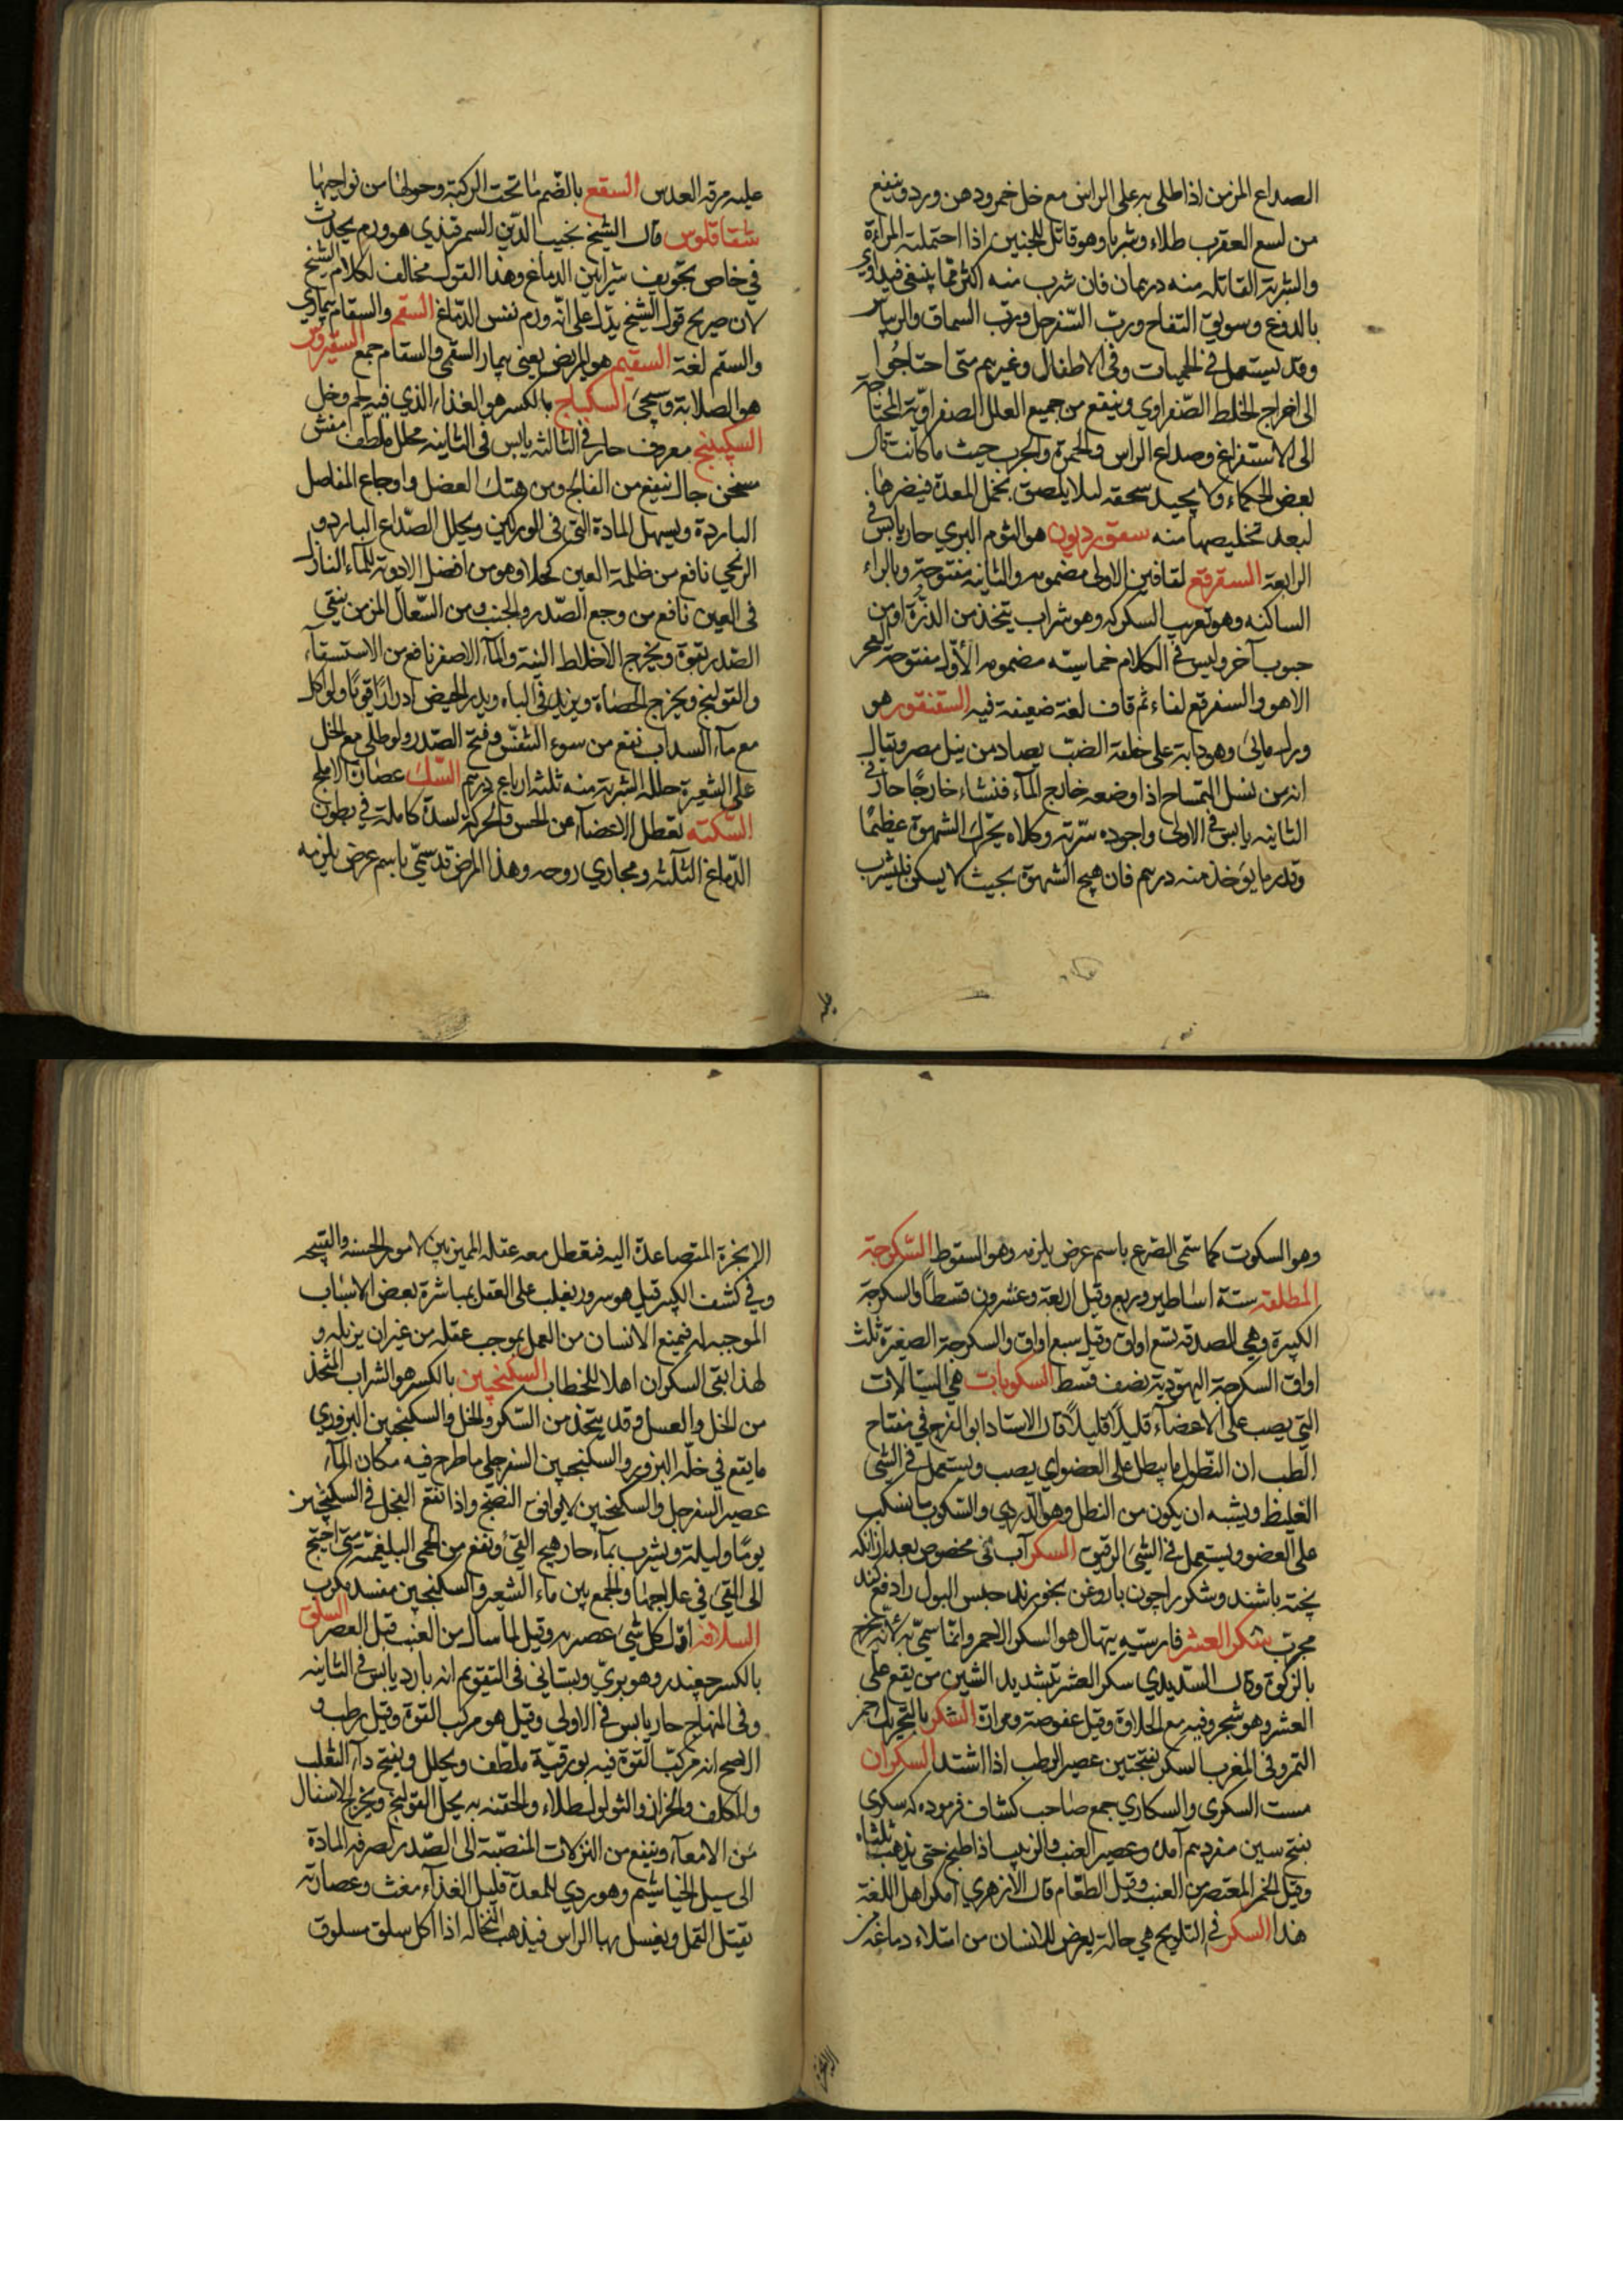 الصداع المزمن اذا طلى به على الراس مع خل خمر ودهن ورد وينفع
من لسع العقرب طلاء وشربا وهو قاتل للجنين اذا احتملته المراءة
والشربة القاتله منه درهمان فان شرب منه اكثر مما ينبغى فيداوي
بالدوغ وسويق التفاح ورب السفرجل ورب السماق والريباس
وقد يستعمل في الحميات وفى الاطفال وغيرهم متى احتاجوا
الى اخراج الخلط الصفراوي وينفع من جميع العلل الصفراوية المحتاجة
الى الاستفراغ وصداع الراس والحمرة والجرب حيث ما كانت قال
بعض الحكماء ولا يجيد سحقه ليلا يلصق بخمل المعدة فيضرها
لبعد تخليصها منه سقورديون هو الثوم البري حار يابس في
الرابعة السقرقع لقافين الاولى مضمومه والثانية مفتوحة وبالراء
الساكنه وهو تعريب السكركه وهو شراب يتخذ من الذرة او من
حبوب آخر وليس في الكلام خماسيته مضمومه الأول مفتوحة العجز
الا هو والسفرقع لفاء ثم قاف لغة ضعيفة فيه السقنقور هو
ورل مائى وهو دابة على خلقة الضب يصاد من نيل مصر ويقال
انه من نسل التمساح اذا وضعه خارج الماء فنشاء خارجا حار في
الثانيه يابس في الاولى واجوده سرته وكلاه يحرك الشهوة عظيما
وقدر ما يؤخذ منه درهم فان هيج الشهوة بحيث لا يسكن فليشرب
عليه مرقه العدس السقع بالضم ما تحت الركبة وحولها من نواحيها
شقاقلوس قال الشيخ نجيب الدين السمرقندي هو ورم يحدث
في خاص تجويف شرايين الدماغ وهذا القول مخالف لكلام الشيخ
لان صريح قول الشيخ يدل على انه ورم نفس الدماغ السقم والسقام بيماري
والسقم لغة السقيم هو المريض يعنى بيمار السقمى والسقام جمع السقيروس
هو الصلابة وسيجئ السكباج بالكسر هو الغذاء الذي فيه لحم وخل
السكبينج معروف حار في الثالثه يابس فى الثانيه محلل ملطف مفش
مسخن جال ينفع من الفالج ومن هتك العضل واوجاع المفاصل
الباردة ويسهل المادة التى فى الوركين ويحلل الصداع البارد و
الريحي نافع من ظلمة العين كحلا وهو من افضل الادوية للماء النازل
فى العين نافع من وجع الصدر والجنب ومن السعال المزمن ينقى
الصدر بقوة ويخرج الاخلاط النيئة والماء الاصفر نافع من الاستسقاء
والقولنج ويخرج الحصاة ويزيد في الباه ويدر الحيض ادرارا قويا ولو اكل
مع ماء السداب نفع من سوء التنفس وفتح الصدر ولو طلى مع الخل
على الشعيرة حلله الشربة منه ثلثه ارباع درهم السك عصارة الاملج
السكته تعطل الاعضاء عن الحس والحركة لسدة كاملة في بطون
الدماغ الثلثه ومجاري روحه وهذا المرض قد سمى باسم عرض يلزمه
وهو السكوت كما سمى الصرع باسم عرض يلزمه وهو السقوط السكرجة
المطلقه ستة اساطير وربع وقيل اربعة وعشرون قسطا والسكرجة
الكبيرة وهي الصدقه تسع اواق وقيل سبع اواق والسكرجة الصغيرة ثلث
اواق السكرجة اليهودية نصف قسط السكوبات هي السيالات
التي يصب على الاعضاء قليلا قليلا قال الاستاد ابو الفرج في مفتاح
الطب ان النطول ما يبطل على العضو اي يصب ويستعمل في الشى
الغليظ ويشبه ان يكون من النطل وهو الدردي والسكوب ما يسكب
على العضو ويستعمل في الشئ الرقيق السكر آب نى مخصوص بعد از انكه
پخته باشند وشكر را چون با روغن بخورند حبس البول را دفع كند
مجرب سكر العشر فارسيه يتهال هو السكر الاحمر وانما سمى به لانه يخرج
بالزكوة وقال السديدي سكر العشر بتشديد الشين من يقع على
العشر وهو شجر وفيه مع الحلاوة وقيل عفوصة ومرارة السكر بالتحريك خمر
التمر وفى المغرب السكر بفتحتين عصير الرطب اذا اشتد السكران
مست السكرى والسكاري جمع صاحب كشاف فرموده كه سكرى
بفتح سين مفرد هم آمده وعصير العنب والزبيب اذا طبخ حتى يذهب ثلثاه
وقيل الخمر المعتصر من العنب وقيل الطعام قال الازهري انكر اهل اللغة
هذا السكر في التلويح هي حالة يعرض للانسان من امتلاء دماغه من
الابخرة المتصاعدة اليه فيعطل معه عقله المميز بين الامور الحسنه والقبيحه
وفي كشف الكبير قيل هو سرور يغلب على العقل بمباشرة بعض الاسباب
الموجبه له فيمنع الانسان من العمل بموجب عقله من غير ان يزيله و
لهذا بقى السكران اهلا للخطاب السكنجبين بالكسر هو الشراب المتخذ
من الخل والعسل وقد يتخذ من السكر والخل والسكنجبين البزوري
ما يقع في خله البزور والسكنجبين السفرجلي ما طرح فيه مكان الماء
عصير السفرجل والسكنجبين لا يوافق النضج واذا نقع الفجل في السكنجبين
يوما وليلة ويشرب بماء حار هيج القئ ونفع من الحمى البلغمية متى احتيج
الى القئ في علاجها والجمع بين ماء الشعير والسكنجبين مفسد مكرب
السلافه اول كل شئ عصرته وقيل لما سال من العنب قبل العصر السلق
بالكسر چغندر وهو بري وبستاني فى التقويم انه بارد يابس في الثانيه
وفى المنهاج حار يابس في الاولى وقيل هو مركب القوة وقيل رطب و
الاصح انه مركب القوة فيه بورقية ملطف ويحلل ويفتح داء الثعلب
والكلف والحزاز والثولول طلاء والحقنه به يحل القولنج ويخرج الاسفال
من الامعاء وينفع من النزلات المنصبة الى الصدر لصرفه المادة
الى سبيل الخياشيم وهو ردي للمعدة قليل الغذاء مغث وعصارته
يقتل القمل ويغسل بها الراس فيذهب النخاله اذا اكل سلق مسلوق